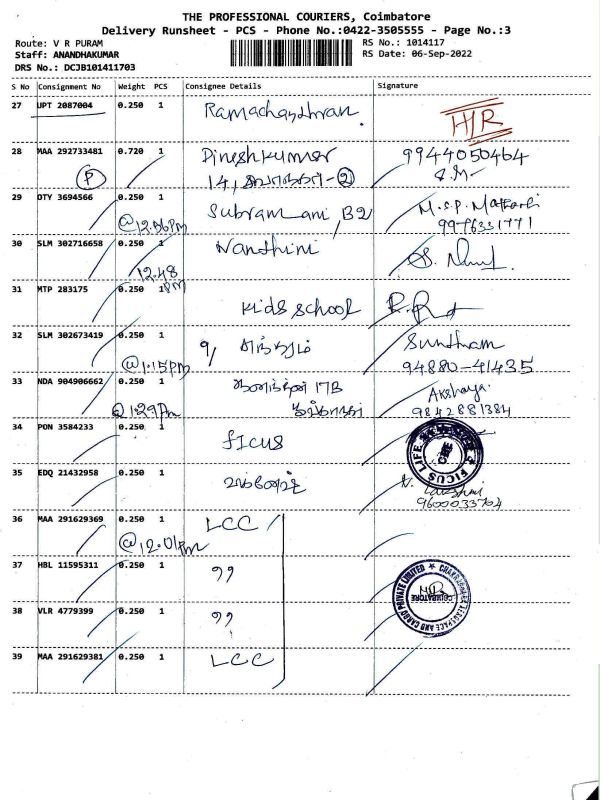 THE PROFESSIONAL COURIERS, Coimbatore
Delivery Runsheet - PCS - Phone No.:0422-3505555 - Page No.:3
Route: V R PURAM
Staff: ANANDHAKUMAR
DRS No.: DCJB101411703
RS No.: 1014117
RS Date: 06-Sep-2022
S No Consignment No Weight PCS Consignee Details Signature
27 UPT 2087004 0.250 1 Ramachandhran H/R
28 MAA 292733481 0.720 1 Dineshkumar 9944050464
P 14, - 2
29 DTY 3694566 0.250 1 Subramani, B2
@12.56pm
30 SLM 302716658 0.250 1 Nandhini
12.48 pm
31 MTP 283175 0.250 1 Kids school
32 SLM 302673419 0.250 1 9/ Suntham
@1.15pm 94880-41435
33 NDA 904906662 0.250 1 17B Akshaya
@1.29pm 9842881384
34 PON 3584233 0.250 1 ficus FICUS LIFE
CBE
35 EDQ 21432958 0.250 1
9600033704
36 MAA 291629369 0.250 1 LCC
@12.01pm
37 HBL 11595311 0.250 1 ,,
AND CARGO PRIVATE LIMITED
COIMBATORE
38 VLR 4779399 0.250 1 ,,
39 MAA 291629381 0.250 1 LCC